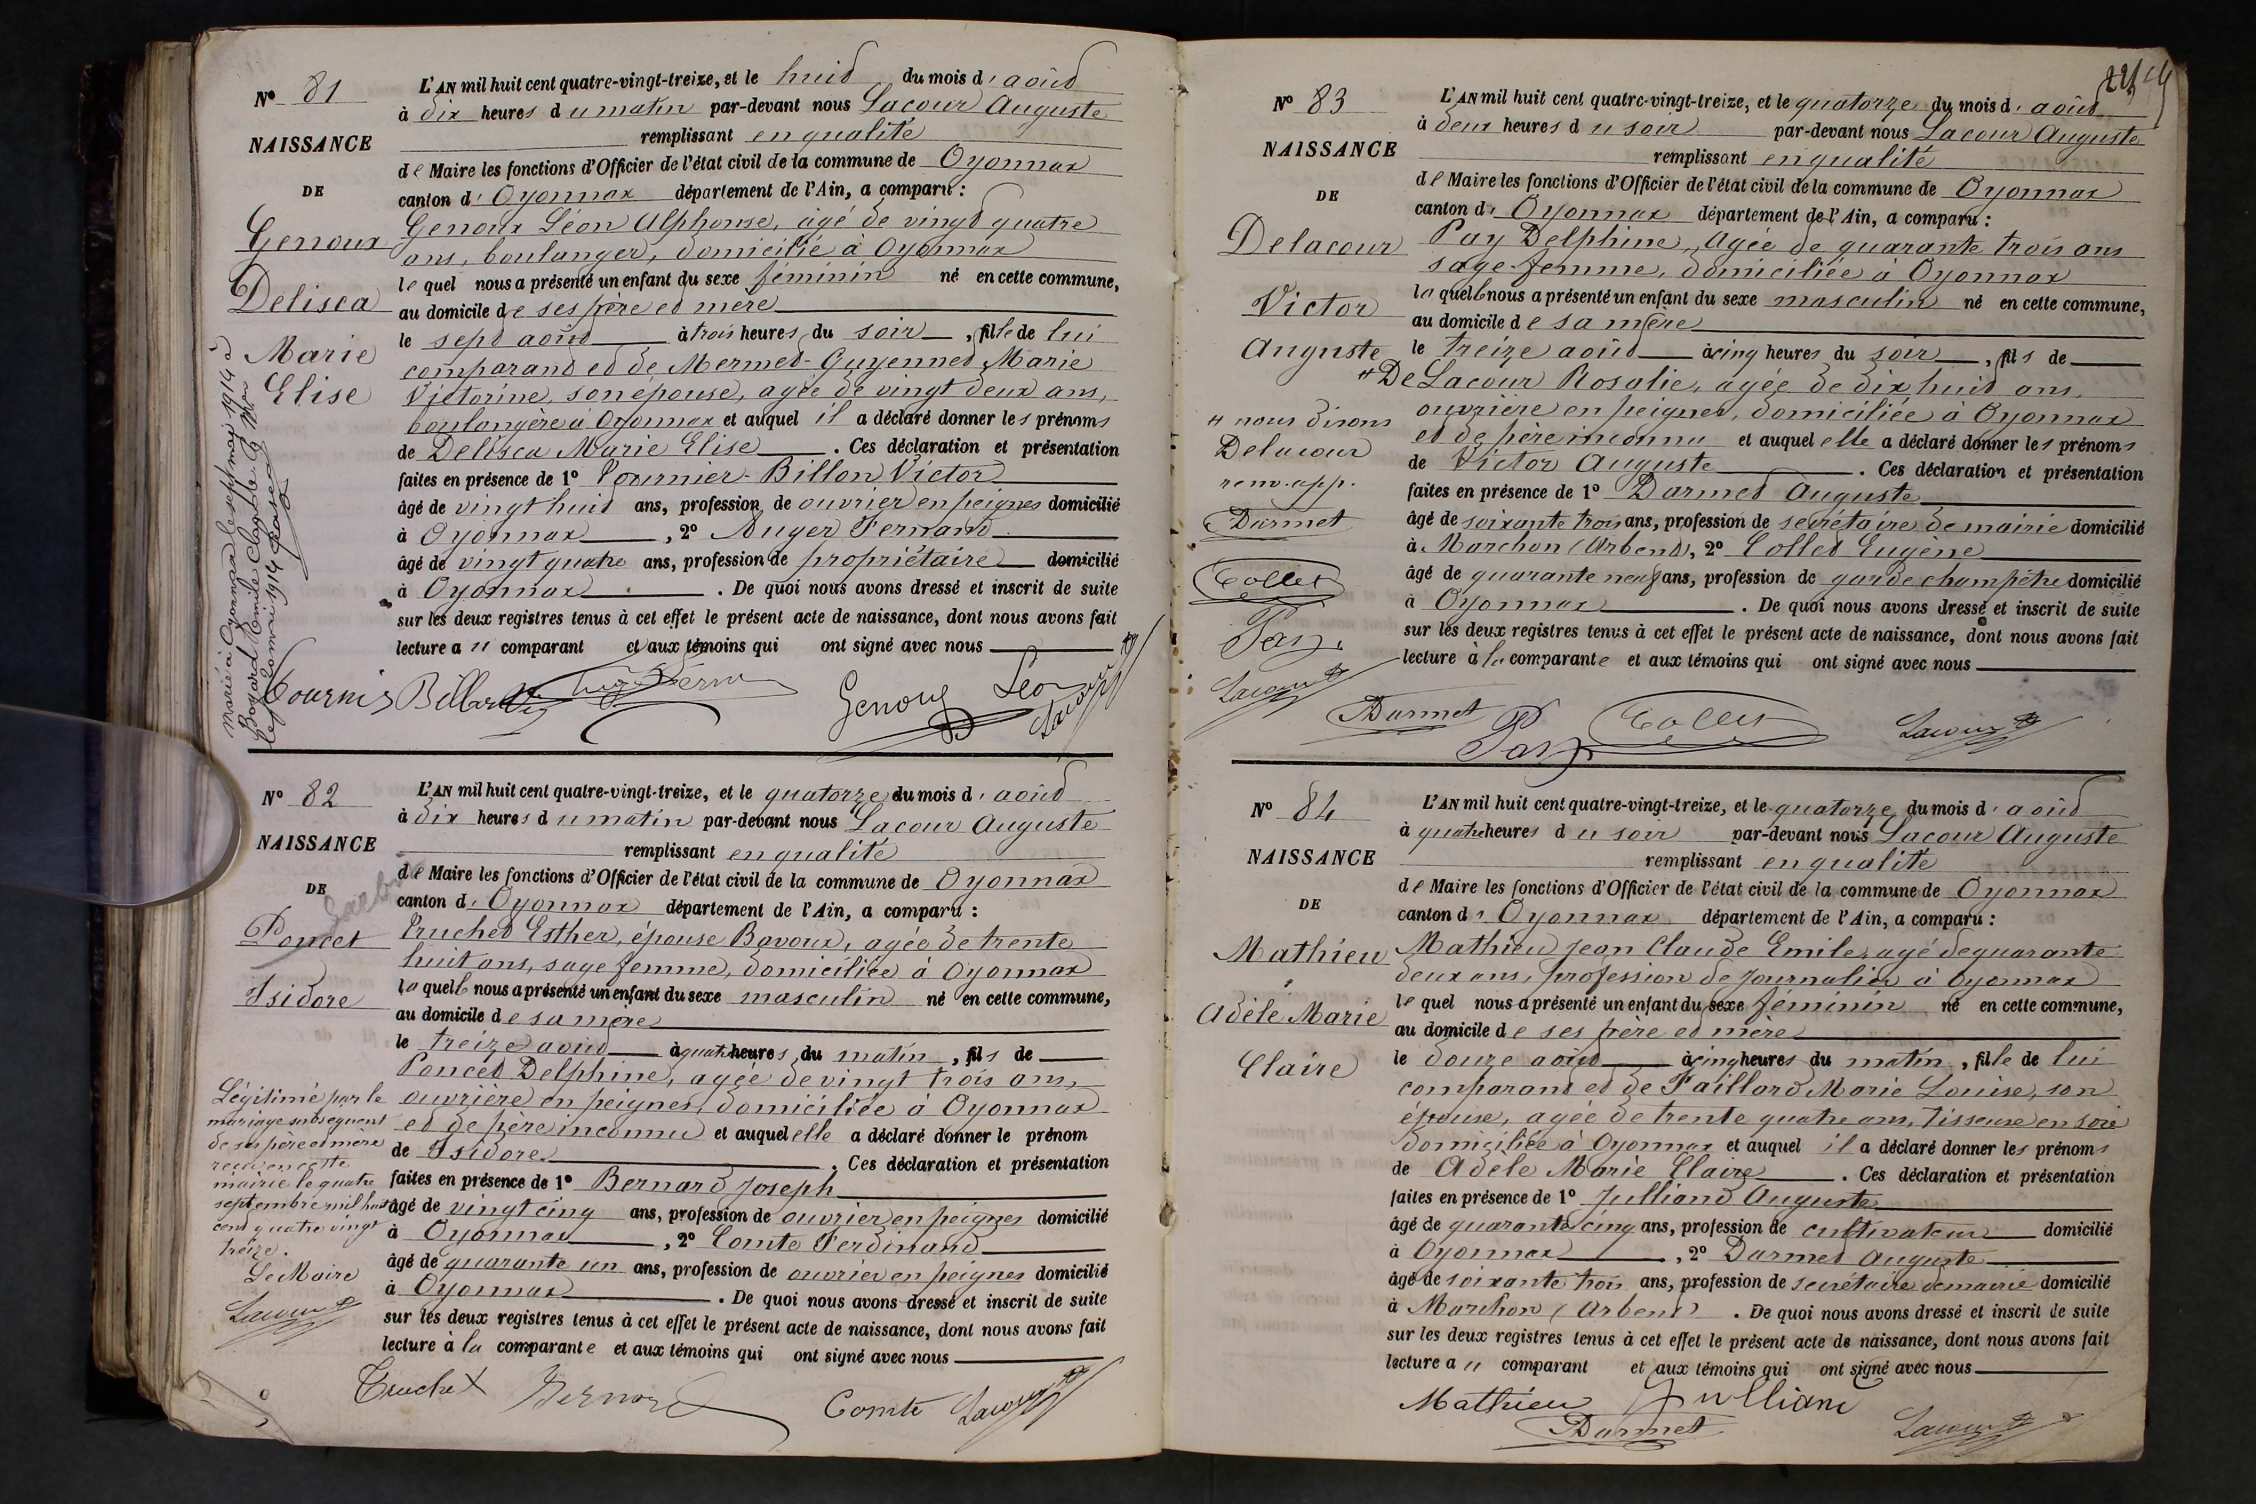 N° 81
NAISSANCE
DE
Genoux
Delisca
Marie
Elise
Marié à Oyonnax le sept mai 1914 à
Le
L'AN mil huit cent quatre-vingt-treize, et le huit du mois d'août
à dix heures du matin par-devant nous Lacour Auguste
remplissant en qualité
de Maire les fonctions d'Officier de l'état civil de la commune de Oyonnax
canton d'Oyonnax département de l'Ain, a comparu :
Genoux Léon Alphonse, âgé de vingt quatre
ans, boulanger, domicilié à Oyonnax
lequel nous a présenté un enfant du sexe féminin né en cette commune,
au domicile de ses père et mère
le sept août à trois heures du soir, fille de lui
comparant et de Mermet-Guyennet Marie
Victorine, son épouse, agée de vingt deux ans,
boulangère à Oyonnax et auquel il a déclaré donner les prénoms
de Delisca Marie Elise. Ces déclaration et présentation
faites en présence de 1° Tournier-Billon Victor
âgé de vingt huit ans, profession de ouvrier en peignes domicilié
à Oyonnax, 2° Auger Fernand
âgé de vingt quatre ans, profession de propriétaire domicilié
à Oyonnax. De quoi nous avons dressé et inscrit de suite
sur les deux registres tenus à cet effet le présent acte de naissance, dont nous avons fait
lecture au comparant et aux témoins qui ont signé avec nous
Genoux Léon Lacour
N° 82
NAISSANCE
DE
Poncet
Isidore
Légitimé par le
mariage subséquent
de ses père et mère
reçu en cette
mairie le quatre
septembre mil huit
cent quatre vingt
treize.
Le Maire
Lacour
L'AN mil huit cent quatre-vingt-treize, et le quatorze du mois d'août
à dix heures du matin par-devant nous Lacour Auguste
remplissant en qualité
de Maire les fonctions d'Officier de l'état civil de la commune de Oyonnax
canton d'Oyonnax département de l'Ain, a comparu :
Truchet Esther, épouse Bavoux, agée de trente
huit ans, sage femme, domiciliée à Oyonnax
laquelle nous a présenté un enfant du sexe masculin né en cette commune,
au domicile de sa mère
le treize août à quatre heures du matin, fils de
Poncet Delphine, agée de vingt trois ans,
ouvrière en peignes, domiciliée à Oyonnax
et de père inconnu et auquel elle a déclaré donner le prénom
de Isidore. Ces déclaration et présentation
faites en présence de 1° Bernard Joseph
âgé de vingt cinq ans, profession de ouvrier en peignes domicilié
à Oyonnax, 2° Comte Ferdinand
âgé de quarante un ans, profession de ouvrier en peignes domicilié
à Oyonnax. De quoi nous avons dressé et inscrit de suite
sur les deux registres tenus à cet effet le présent acte de naissance, dont nous avons fait
lecture à la comparante et aux témoins qui ont signé avec nous
Truchet Bernard Comte Lacour
N° 83
NAISSANCE
DE
Delacour
Victor
Auguste
nous disons
Delacour
renv. app.
Darmet
Collet
Pay
Lacour
L'AN mil huit cent quatre-vingt-treize, et le quatorze du mois d'août
à deux heures du soir par-devant nous Lacour Auguste
remplissant en qualité
de Maire les fonctions d'Officier de l'état civil de la commune de Oyonnax
canton d'Oyonnax département de l'Ain, a comparu :
Pay Delphine, agée de quarante trois ans
sage-femme, domiciliée à Oyonnax
laquelle nous a présenté un enfant du sexe masculin né en cette commune,
au domicile de sa mère
le treize août à cinq heures du soir, fils de
De Lacour Rosalie, agée de dix huit ans,
ouvrière en peignes, domiciliée à Oyonnax
et de père inconnu et auquel elle a déclaré donner les prénoms
de Victor Auguste. Ces déclaration et présentation
faites en présence de 1° Darmet Auguste
âgé de soixante trois ans, profession de secrétaire de mairie domicilié
à Marchon (Arbent), 2° Collet Eugène
âgé de quarante neuf ans, profession de garde champêtre domicilié
à Oyonnax. De quoi nous avons dressé et inscrit de suite
sur les deux registres tenus à cet effet le présent acte de naissance, dont nous avons fait
lecture à la comparante et aux témoins qui ont signé avec nous
Darmet Pay Collet Lacour
N° 84
NAISSANCE
DE
Mathieu
Adèle Marie
Claire
L'AN mil huit cent quatre-vingt-treize, et le quatorze du mois d'août
à quatre heures du soir par-devant nous Lacour Auguste
remplissant en qualité
de Maire les fonctions d'Officier de l'état civil de la commune de Oyonnax
canton d'Oyonnax département de l'Ain, a comparu :
Mathieu Jean Claude Emile, agé de quarante
deux ans, profession de journalier à Oyonnax
lequel nous a présenté un enfant du sexe féminin né en cette commune,
au domicile de ses père et mère
le douze août à cinq heures du matin, fille de lui
comparant et de Faillard Marie Louise, son
épouse, agée de trente quatre ans, tisseuse en soie
domiciliée à Oyonnax et auquel il a déclaré donner les prénoms
de Adèle Marie Claire. Ces déclaration et présentation
faites en présence de 1° Julliand Auguste
âgé de quarante cinq ans, profession de cultivateur domicilié
à Oyonnax, 2° Darmet Auguste
âgé de soixante trois ans, profession de secrétaire de mairie domicilié
à Marchon (Arbent). De quoi nous avons dressé et inscrit de suite
sur les deux registres tenus à cet effet le présent acte de naissance, dont nous avons fait
lecture au comparant et aux témoins qui ont signé avec nous
Mathieu Julliand
Darmet Lacour